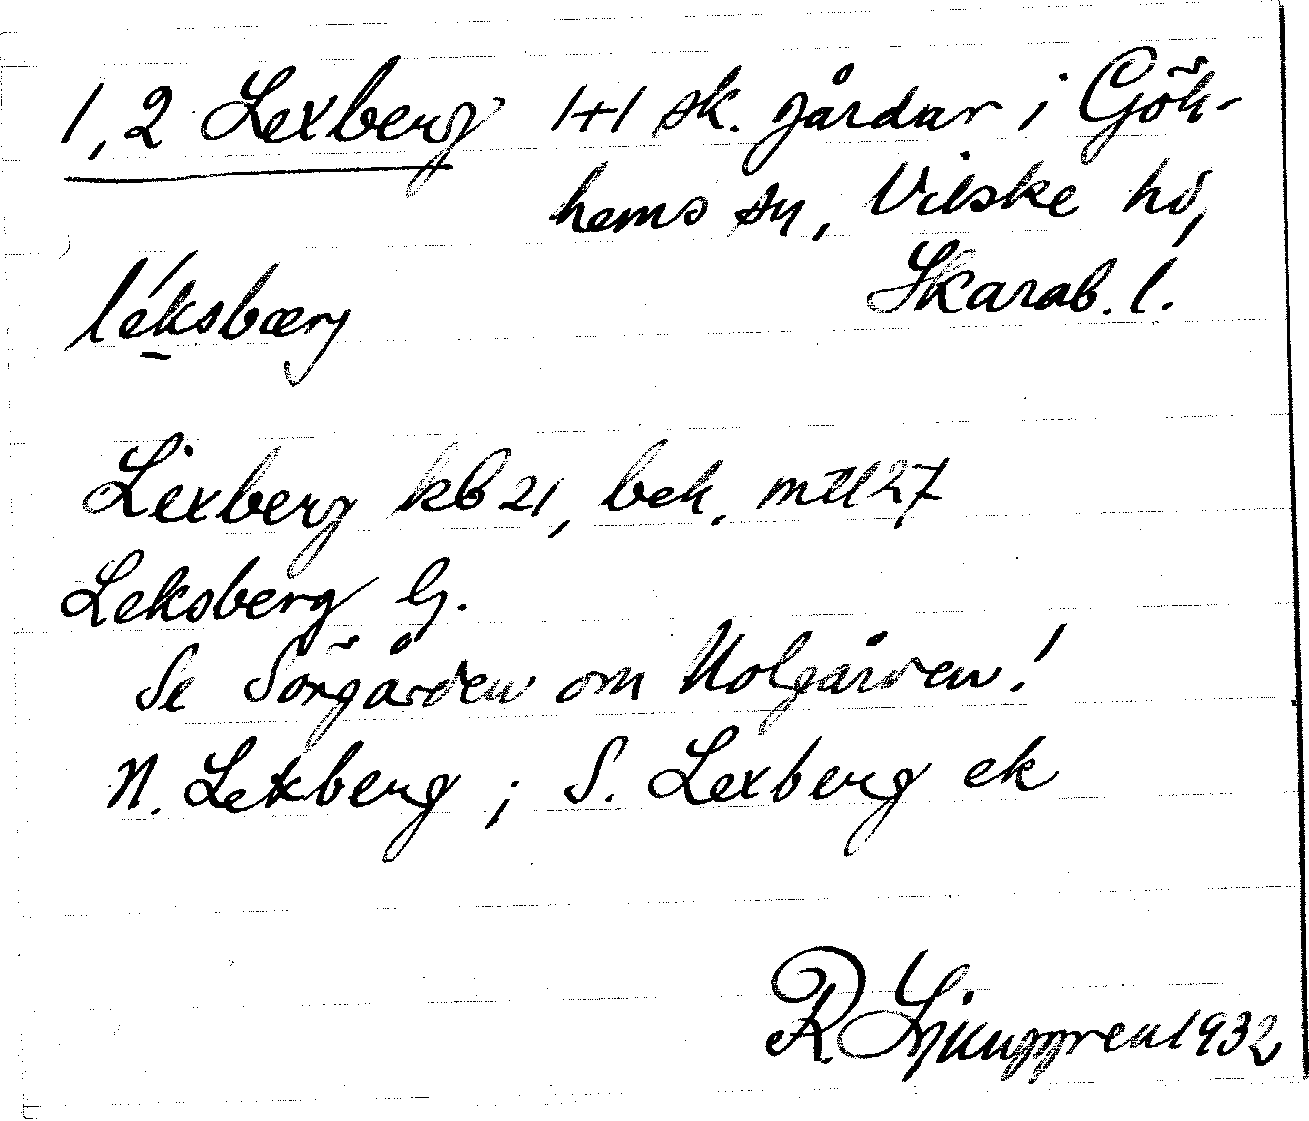 1,2 Lexberg 1+1 sk. gårdar i Gök-
hems sn, Vilske hd,
Skarab. l.
léksbærj
Lexberg kb 21, bek. mtl 27
Leksberg G.
Se Sörgården om Nolgården!
N. Lexberg ; S. Lexberg ek
R Ljunggren 1932